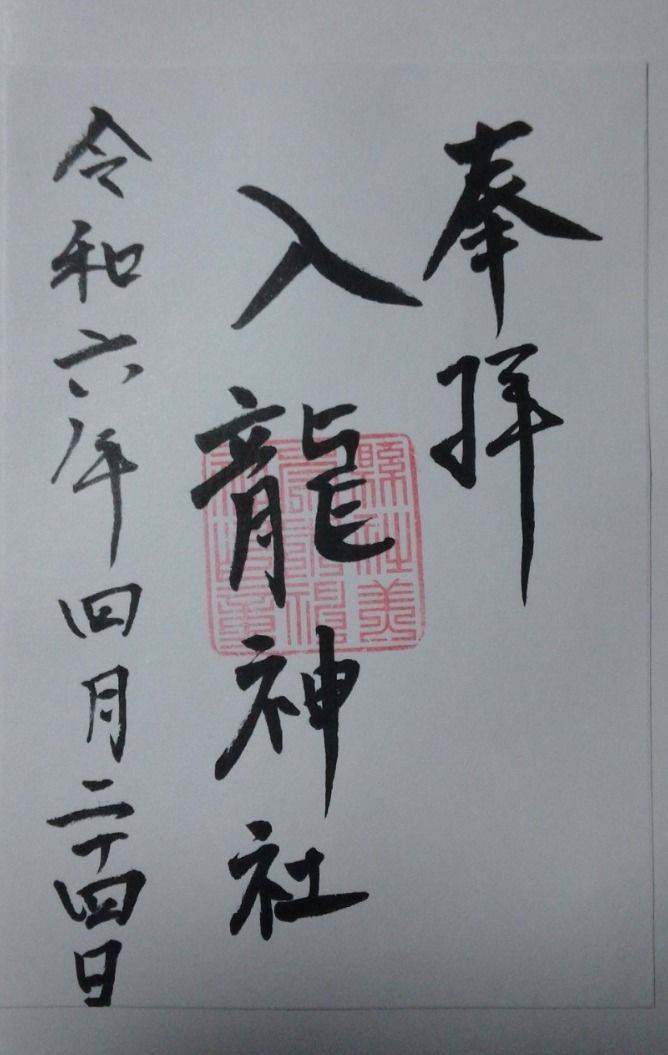 奉拝
入龍神社
令和六年四月二十四日